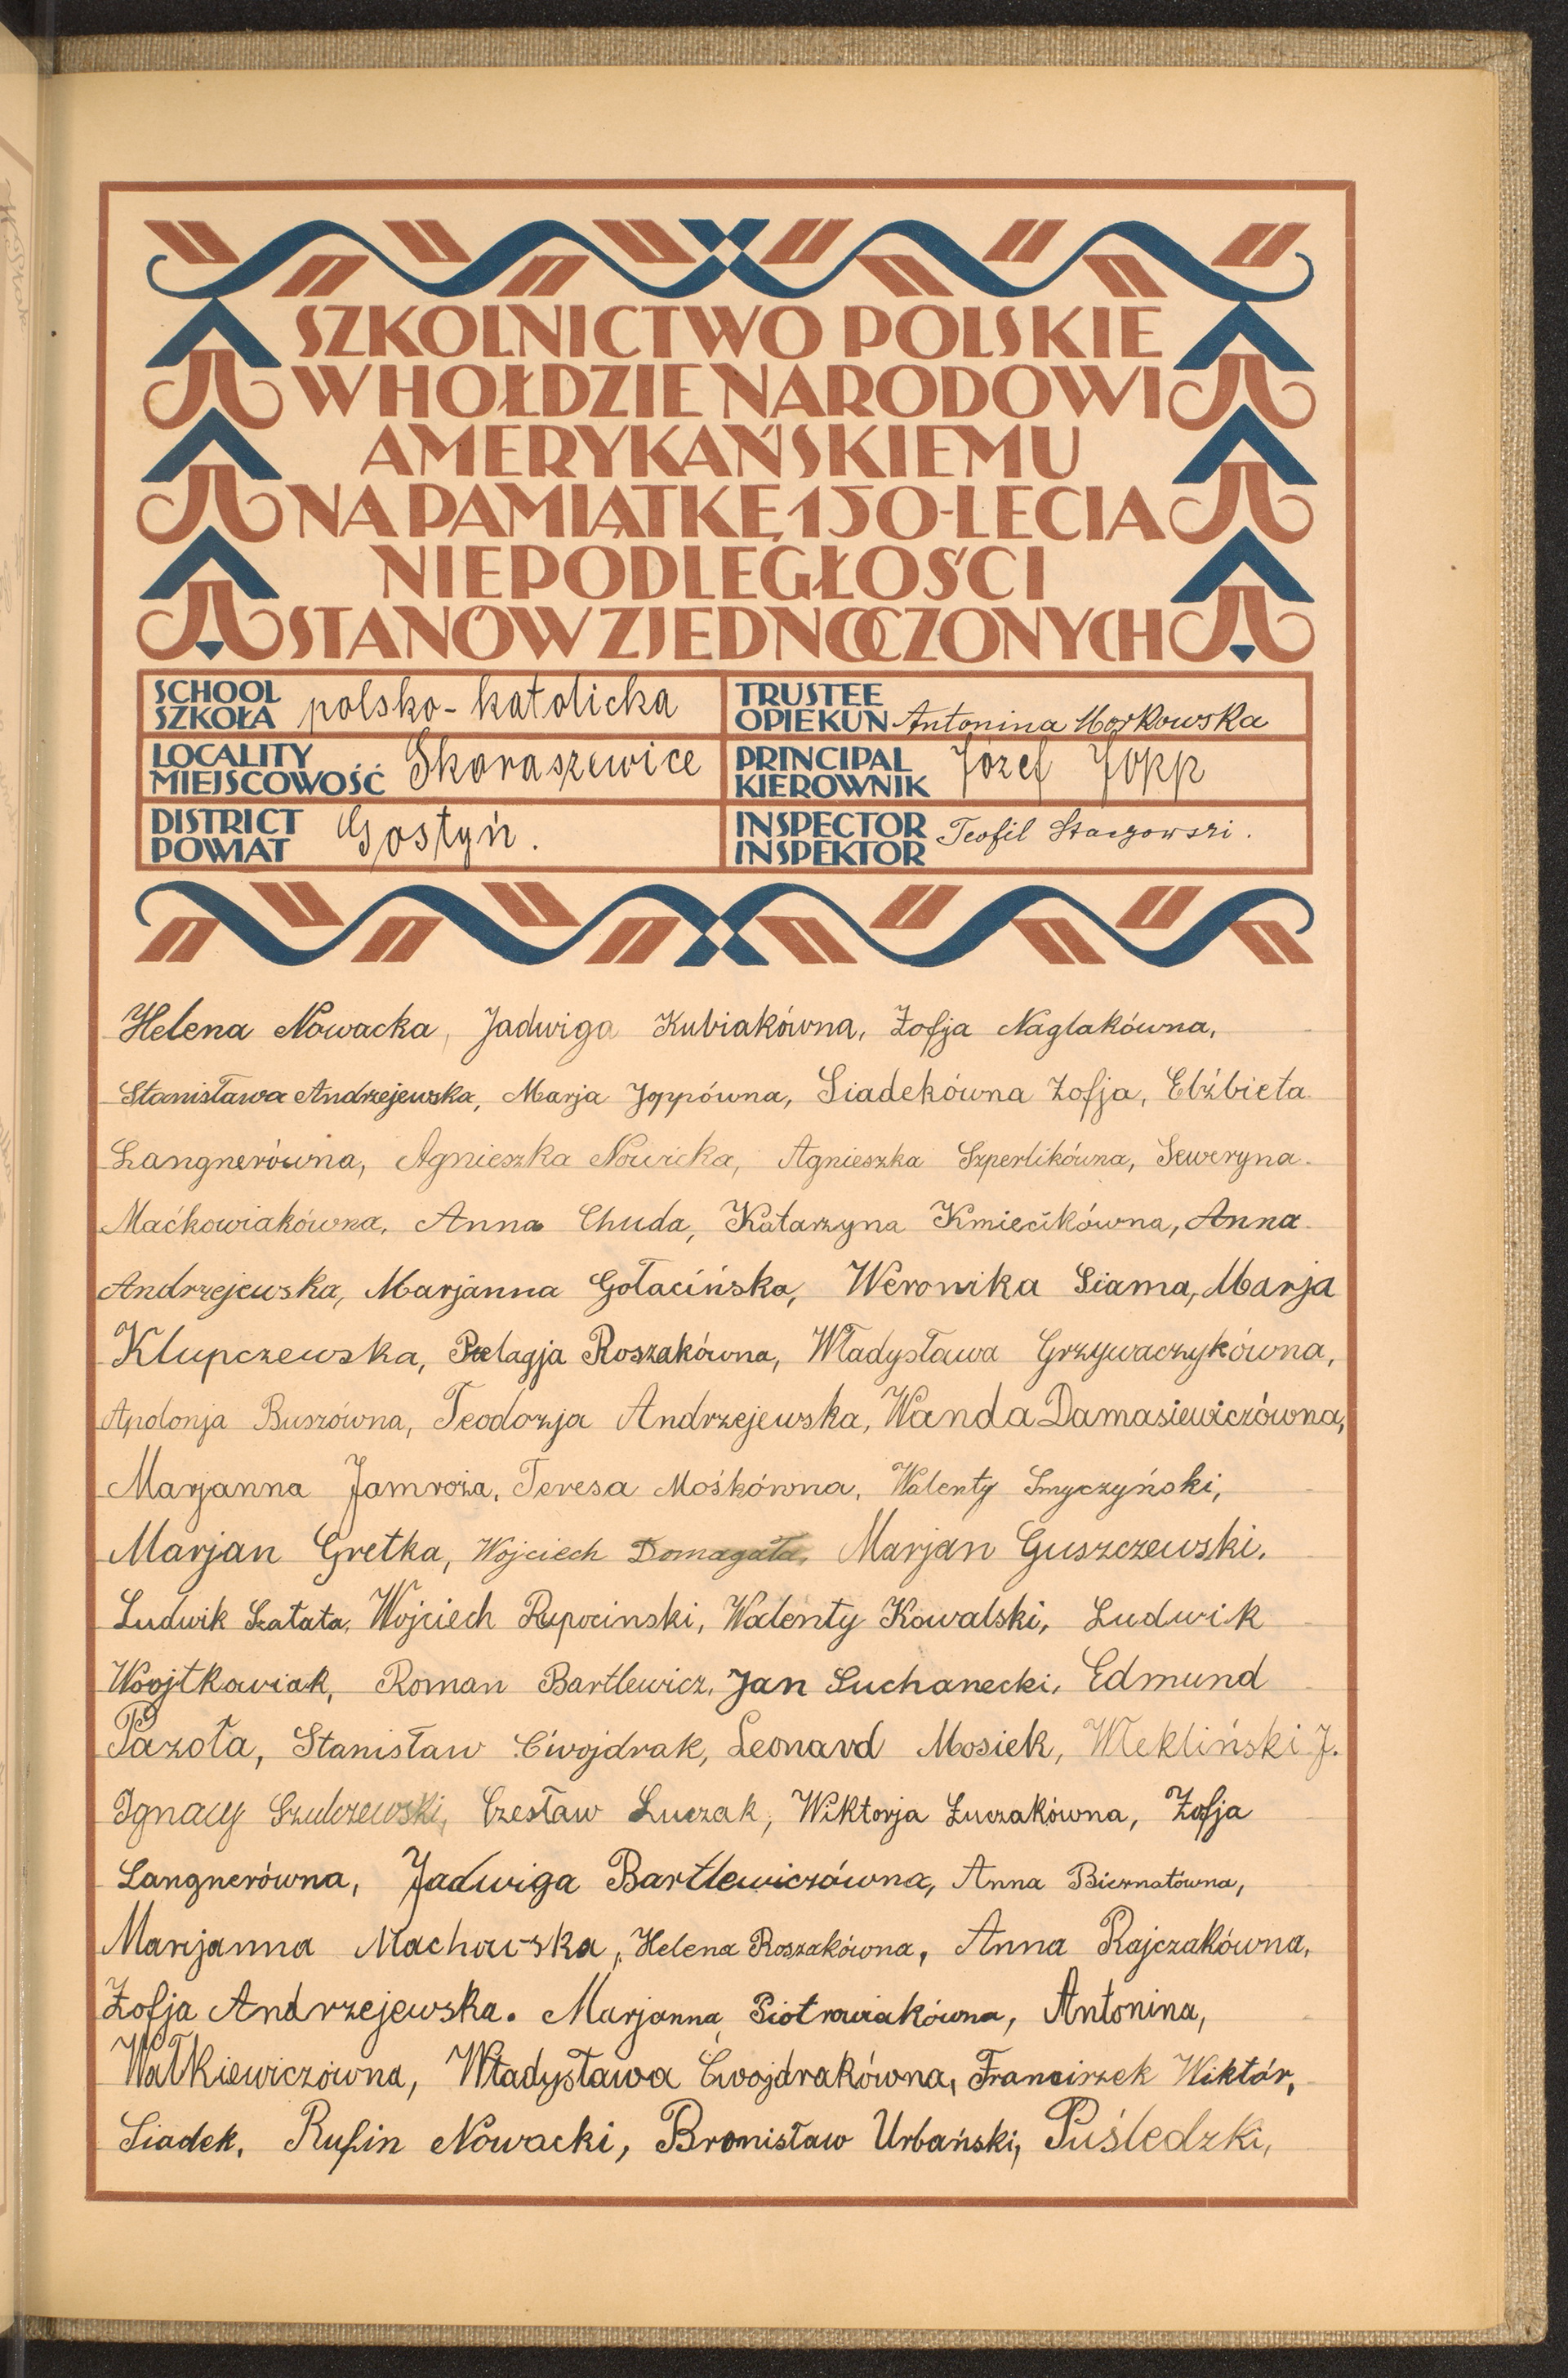 SZKOLNICTWO POLSKIE
W HOŁDZIE NARODOWI
AMERYKAŃSKIEMU
NA PAMIĄTKĘ 150-LECIA
NIEPODLEGŁOŚCI
STANÓW ZJEDNOCZONYCH
SCHOOL
SZKOŁA polsko-katolicka
TRUSTEE
OPIEKUN Antonina Morkowska
LOCALITY
MIEJSCOWOŚĆ Skoraszewice
PRINCIPAL
KIEROWNIK Józef Jopp
DISTRICT
POWIAT Gostyń.
INSPECTOR
INSPEKTOR Teofil
Helena Nowacka, Jadwiga Kubiakówna, Zofja Naglakówna,
Stanisława Andrzejewska, Marja Joppówna, Siadekówna Zofja, Elżbieta
Langnerówna, Agnieszka Nowicka, Agnieszka Szperlikówna, Seweryna
Maćkowiakówna, Anna Chuda, Katarzyna Kmiecikówna, Anna
Andrzejewska, Marjanna Gołacińska, Weronika Siama, Marja
Klupczewska, Pelagja Roszakówna, Władysława Grzywaczykówna,
Apolonja Buszówna, Teodozja Andrzejewska, Wanda Damasiewiczówna,
Marjanna Jamroża, Teresa Mośkówna, Walenty Smyczyński,
Marjan Gretka, Wojciech Domagała, Marjan Guszczewski.
Ludwik Szałata, Wojciech Rupocinski, Walenty Kowalski, Ludwik
Woojtkowiak, Roman Bartlewicz, Jan Suchanecki, Edmund
Pazoła, Stanisław Ćwojdrak, Leonard Mosiek, Wlekliński J.
Ignacy Szulczewski, Czesław Łuczak, Wiktorja Łuczakówna, Zofja
Langnerówna, Jadwiga Bartlewiczówna, Anna Biernatówna,
Marijanna Machowska, Helena Roszakówna, Anna Rajczakówna,
Zofja Andrzejewska. Marjanna Piotrowiakówna, Antonina,
Wałkiewiczówna, Władysława Ćwojdrakówna, Franciszek Wiktór,
Siadek, Rufin Nowacki, Bronisław Urbański, Puśledzki,